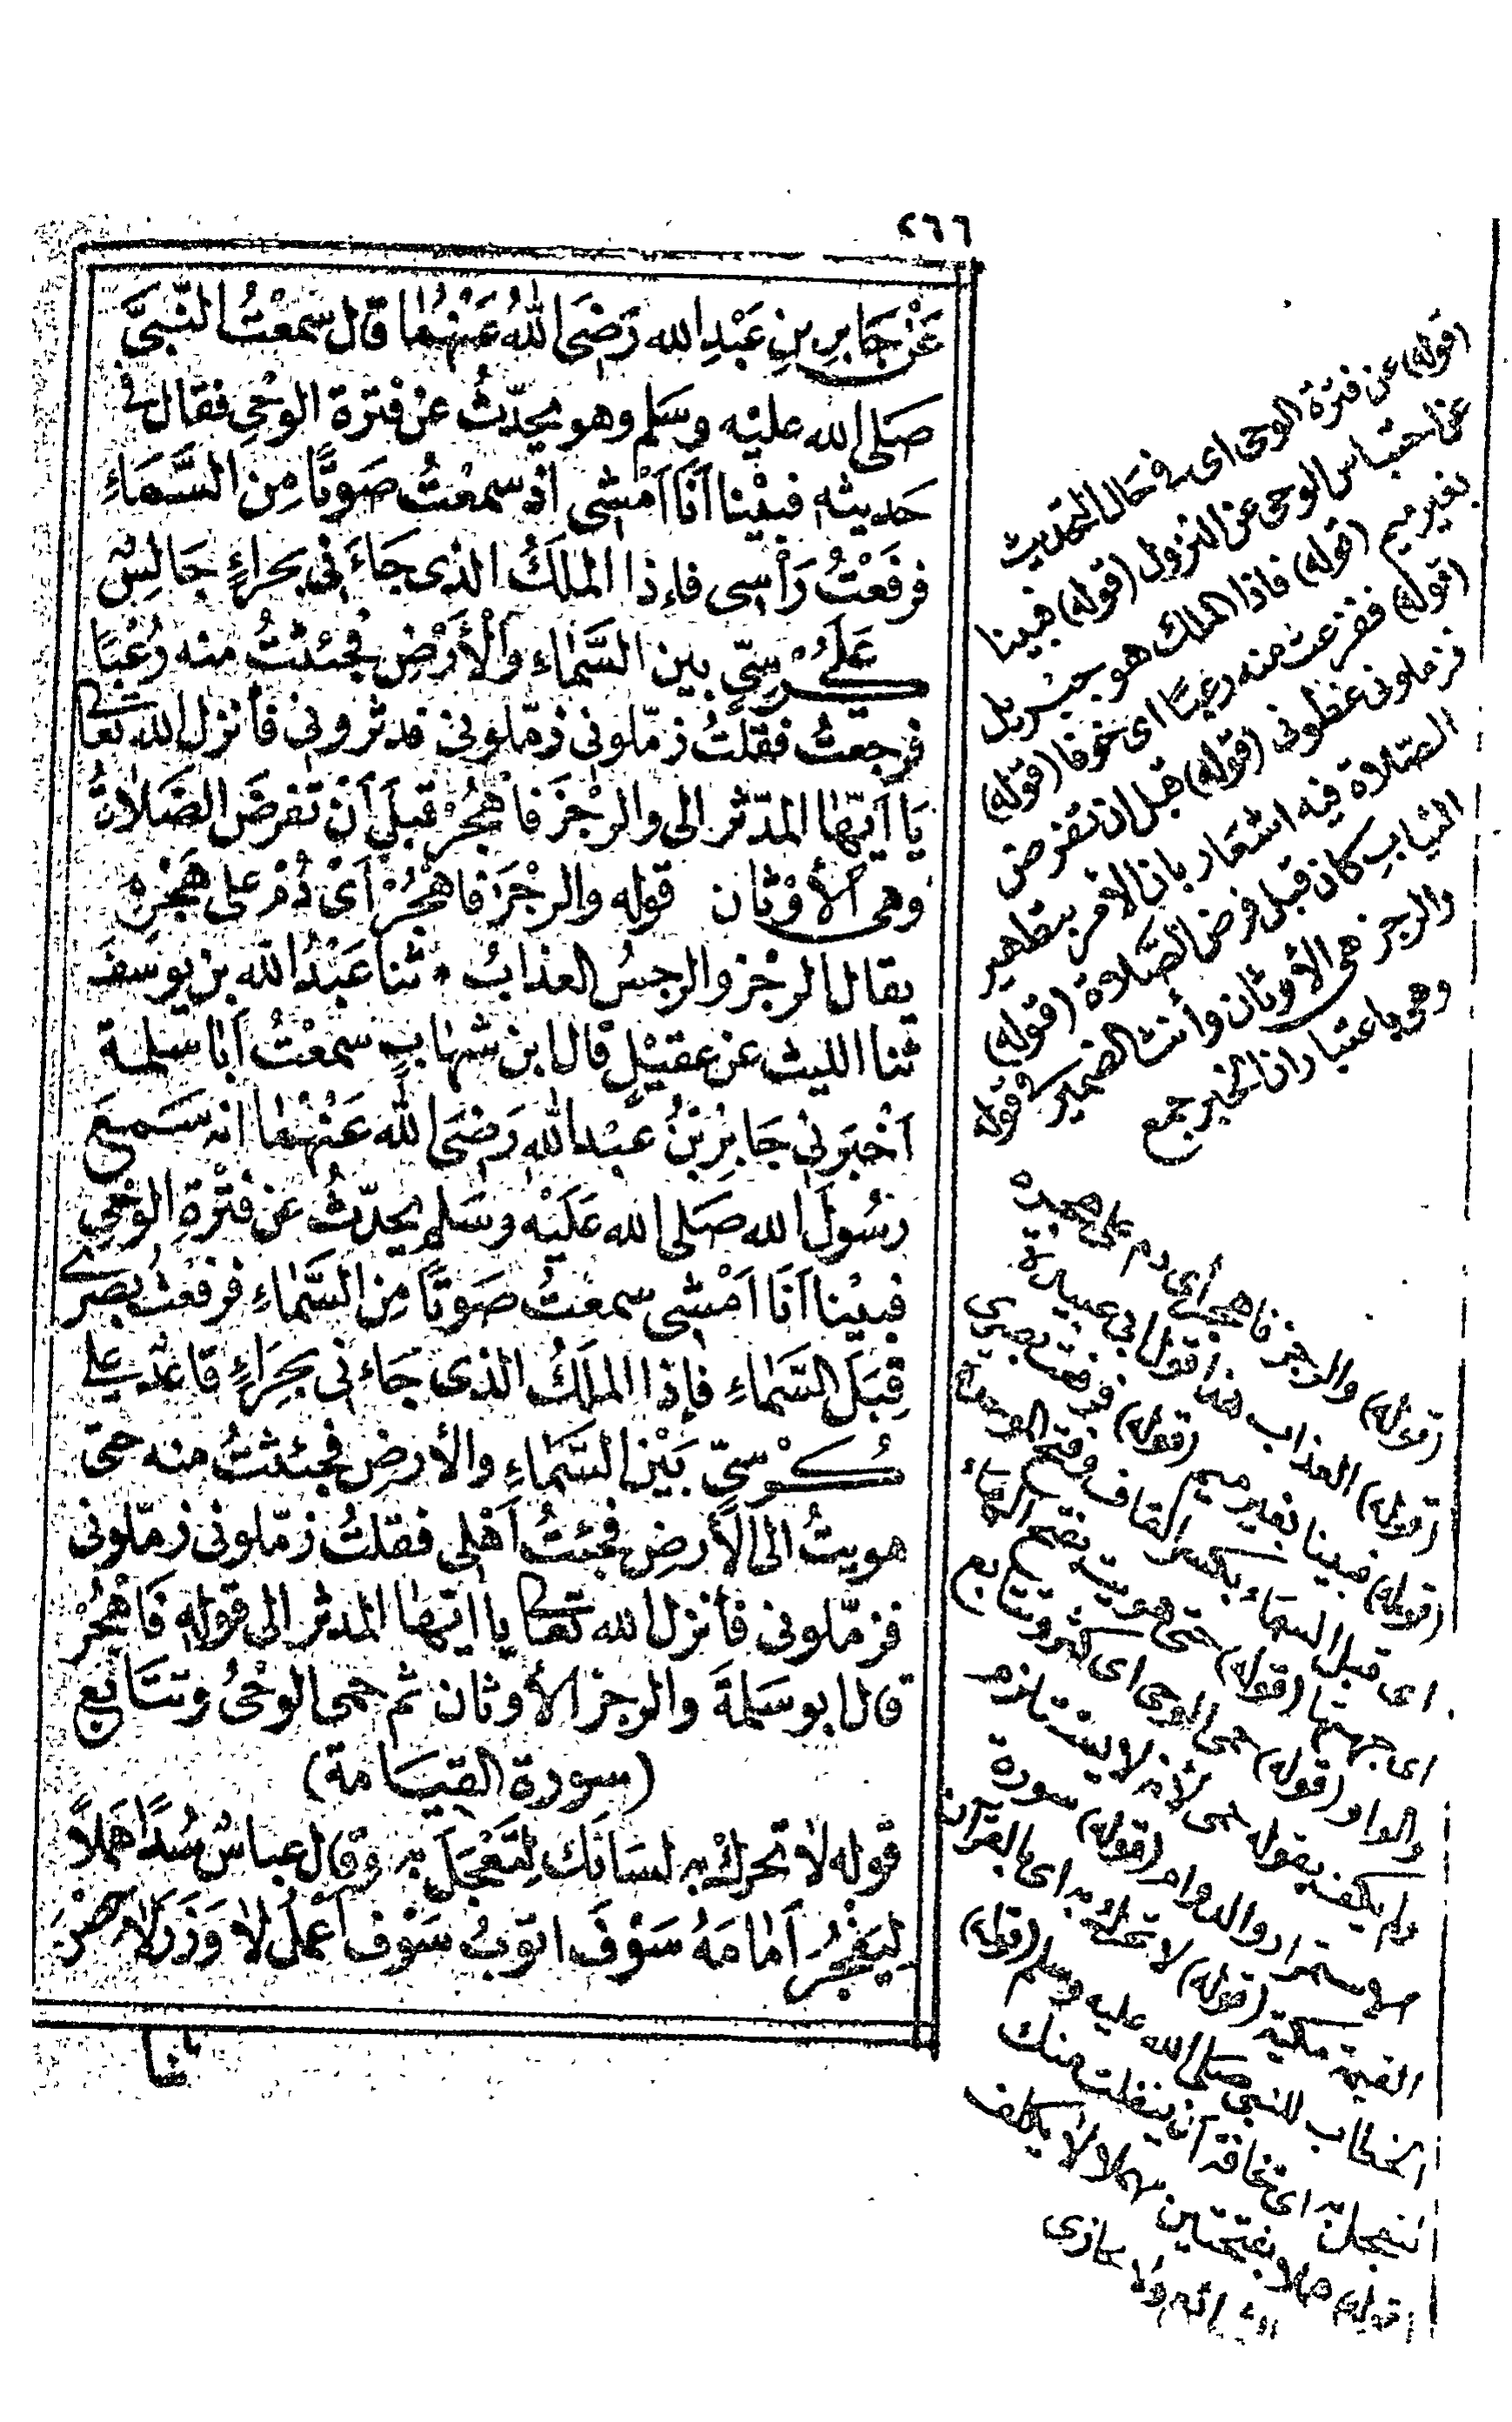 ٢٦٦
عَنْ جَابِرِ بنِ عَبْدِ الله رَضَى اللهُ عَنْهُمَا قال سمعْتُ النَّبىَّ
صَلى الله عليْه وسَلم وهو يحدّثُ عنْ فترة الوحْىِ فقال فى
حَديثه فبيْنا اَنَا اَمْشى اذ سمعْتُ صَوتًا مِن السَّمَاءِ
فرفَعْتُ رَأْسِى فاِذا الملَكُ الذى جَاءَنى بحراءٍ جَالِسٌ
عَلَى كُرْسِىٍّ بين السَّمَاءِ وَالْأَرْضِ فجُئثتُ منه رُعْبًا
فرجعتُ فقلتُ زمّلونى زمّلونى فدثرونى فأنزل الله تعالى
يَا اَيّهَا المدّثر الى والرجْزَ فاهْجُرْ قبلَ اَنْ تفرضَ الصَّلاةُ
وهى الأوْثان قوله والرجْزَ فاهْجُرْ اَىْ دُمْ على هَجْرِه
يقال الرجْز والرجسُ العذابُ * ثنا عَبْدُ الله بن يوسفَ
ثنا الليث عن عقيْلٍ قال ابن شهابٍ سمعْتُ اَبَا سلمة
اَخْبرَنى جَابِرُ بْنُ عبْد الله رَضَى الله عَنْهُمَا انه سَمِعَ
رسُولَ الله صَلى الله عَلَيْه وسَلم يحدّثُ عن فتْرةِ الوحْىِ
فبيْنا اَنَا اَمْشى سمعتُ صَوتًا مِنَ السَّمَاءِ فرفعتُ بصَرى
قِبَلَ السَّمَاءِ فاِذا الملَكُ الذى جَاءنى بحِرَاءٍ قاعدٌ على
كُرْسىٍّ بَيْنَ السَّمَاءِ والأرض فجُئثتُ منه حتى
هويتُ الى الأرضِ فجئتُ اَهْلى فقلتُ زمّلونى زمّلونى
فزمّلونى فأنزل الله تعالى يا ايّها المدثر الى قوله فَاهْجُرْ
قال ابو سَلمةَ والرجز الأوثان ثم حمى الوحْىُ وتتَابَع
(سورة القيَامة)
قوله لاَ تحرك به لسَانَك لِتَعْجَلَ به وقال عباسٌ سُدًا هَمَلاً
لِيَفْجُرَ اَمَامَهُ سَوْفَ اتوبُ سَوْف اَعْملُ لاَ وَزَرَ لاَ حِصْنَ
ثنا
(قوله) عن فترة الوحى اى فى حال التحديث
عن احتباس الوحى عن النزول (قوله) فبينا
بغير ميم (قوله) فاذا الملك هو جبريل
(قوله) ففزعت منه رعبًا اى خوفا (قوله)
فزملونى غطونى (قوله) قبل ان تفرض
الصلاة فيه اشعار بان الأمر بتطهير
الثياب كان قبل فرض الصلاة (قوله)
والرجز هى الأوثان وأنث الضمير فى قوله
وهى باعتبار ان الخبر جمع
(قوله) والرجز فاهجر أى دم على هجره
(قوله) العذاب هذا قول أبى عبيدة
(قوله) فبينا بغير ميم (قوله) فرفعت بصرى
اى قبل السماء بكسر القاف وفتح الموحدة
اى جهتها (قوله) حتى هويت بفتح الهاء
والواو (قوله) حمى الوحى اى كثر وتتابع
ولم يكتف بقوله حمى لأنه لا يستلزم
الاستمرار والدوام (قوله) سورة
القيمة مكية (قوله) لا تحرك به اى بالقرآن
الخطاب للنبى صلى الله عليه وسلم (قوله)
لتعجل به اى مخافة أن ينفلت منك
(قوله) هملا بفتحتين مهملا لا يكلف
بالشرائع ولا يجازى